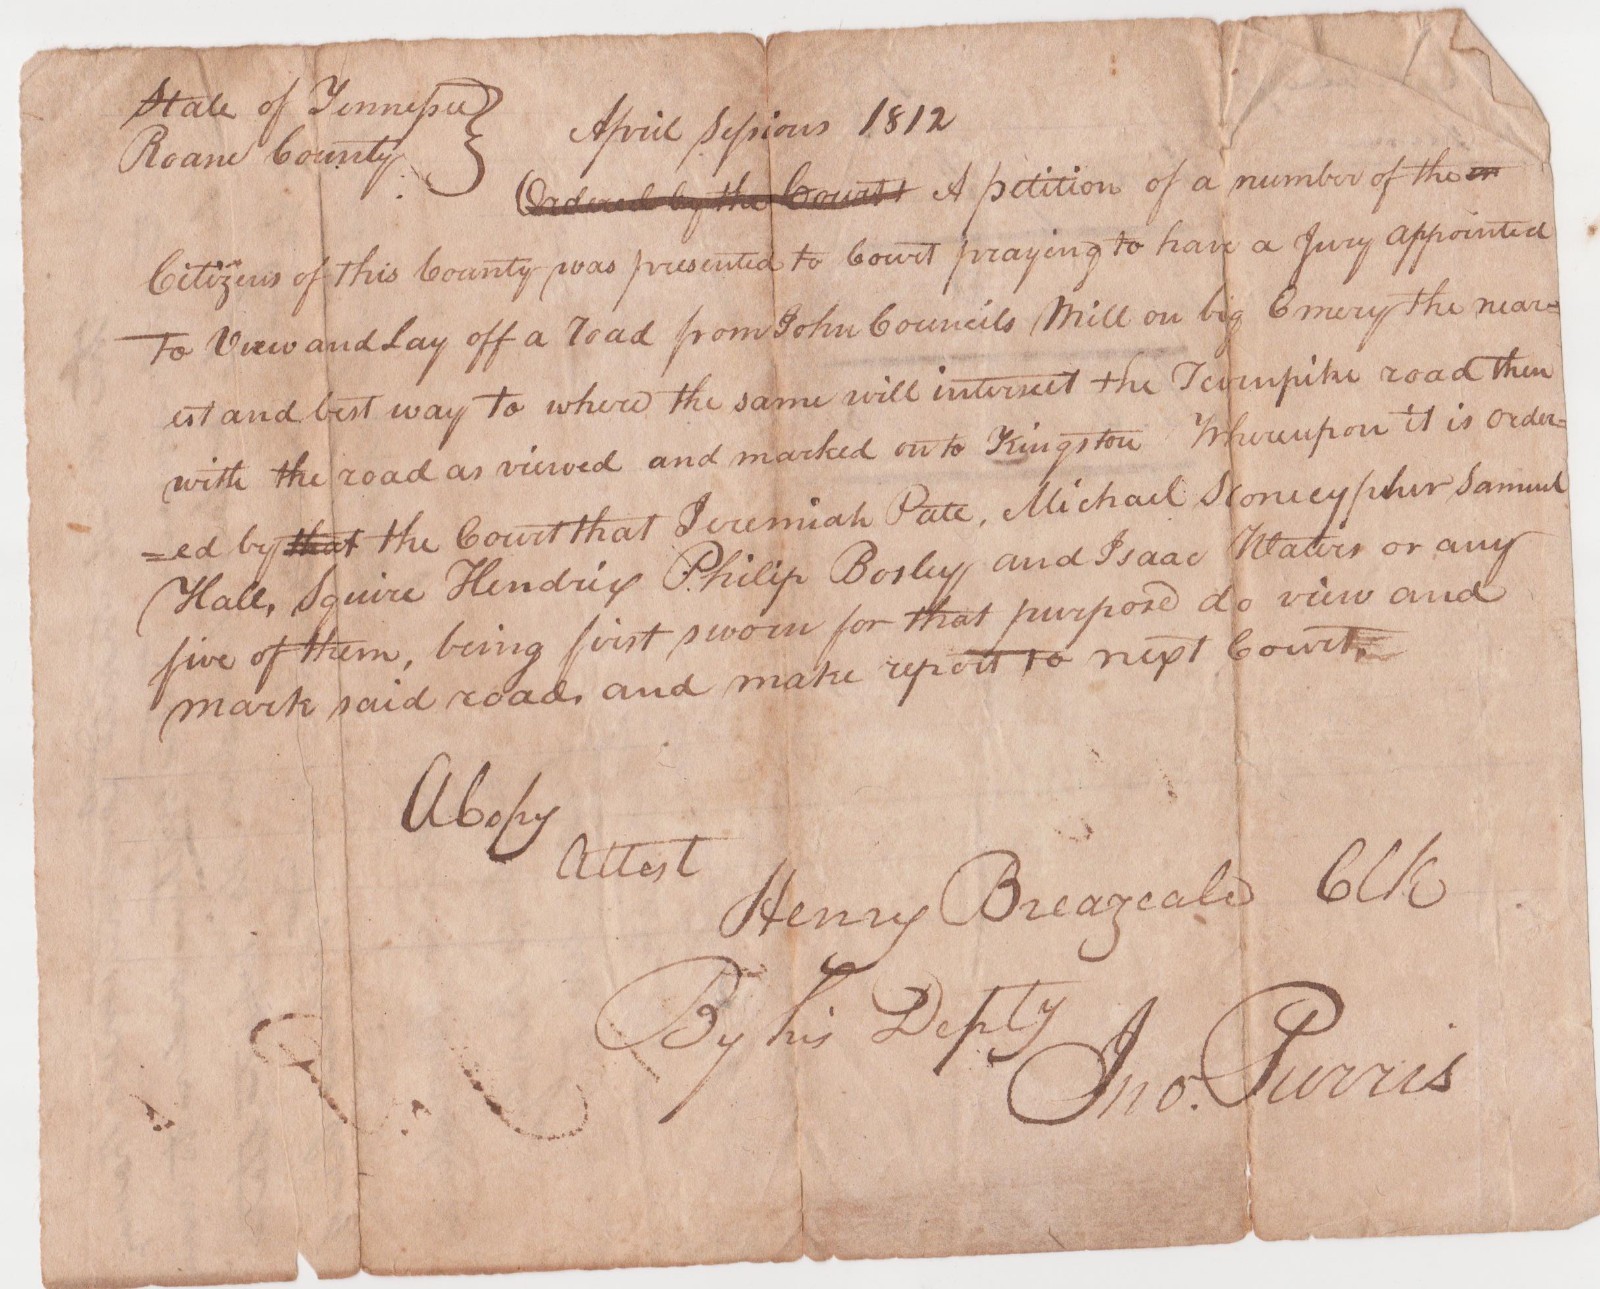 State of Tennessee }
Roane County }
April Sessions 1812
Ordered by the Court A petition of a number of the
Citizens of this County was presented to Court praying to have a Jury appointed
to View and Lay off a road from John Councils Mill on big Emery the near=
est and best way to where the same will intersect the Turnpike road then
with the road as viewed and marked on to Kingston Whereupon it is order=
=ed by that the Court that Jeremiah Pate, Michael Stonecypher Samuel
Hall, Squire Hendrix Philip Bosley and Isaac Waters or any
five of them, being first sworn for that purpose do view and
mark said road, and make report to next Court.
A Copy
Attest
Henry Breazeale Clk
By his Depty
Jno. Purris